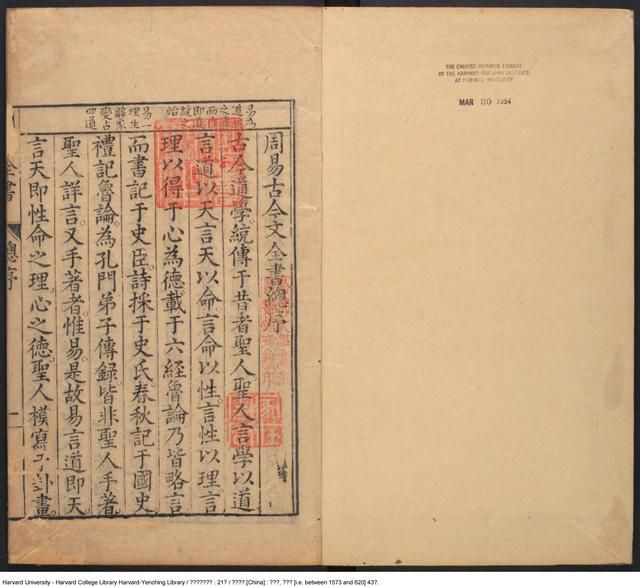 周易古今文全書總序
古今道學統傳于昔者聖人聖人言學以道
言道以天言天以命言命以性言性以理言
理以得于心為德載于六經魯論乃皆略言
而書記于史臣詩採于史氏春秋記于國史
禮記魯論為孔門弟子傳録皆非聖人手著
聖人詳言又手著者惟易是故易言道即天
言天即性命之理心之德聖人模寫于卦畫
全書
總序
一
THE CHINESE-JAPANESE LIBRARY
OF THE HARVARD-YENCHING INSTITUTE
AT HARVARD UNIVERSITY
MAR 30 1954
Harvard University - Harvard College Library Harvard-Yenching Library / ??????? : 21? / ????,[China] : ???, ??? [i.e. between 1573 and 620] 43?.